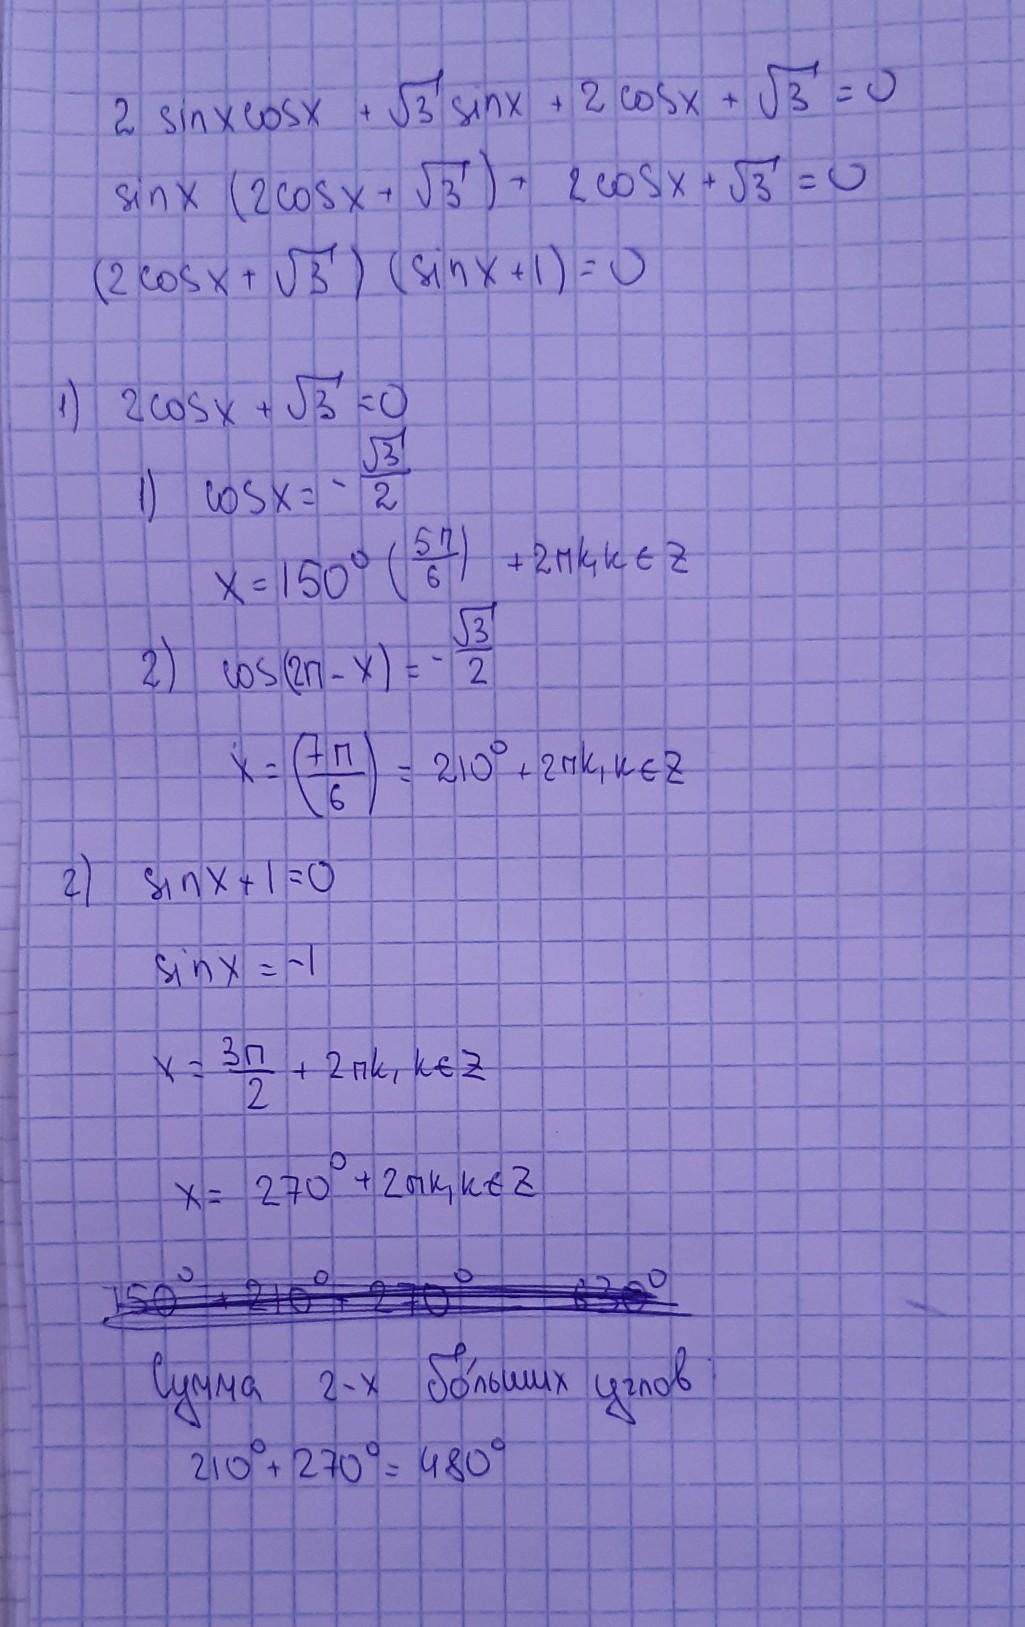 2 sinxcosx + √3 sinx + 2 cosx + √3 = 0
sinx (2cosx + √3) + 2cosx + √3 = 0
(2cosx + √3) (sinx + 1) = 0
1) 2cosx + √3 = 0
1) cosx = - √3/2
x = 150° (5π/6) + 2πk, k ∈ Z
2) cos(2π - x) = - √3/2
x = (7π/6) = 210° + 2πk, k ∈ Z
2) sinx + 1 = 0
sinx = -1
x = 3π/2 + 2πk, k ∈ Z
x = 270° + 2πk, k ∈ Z
150° + 210° + 270° 630°
Сумма 2-х бо́льших углов
210° + 270° = 480°